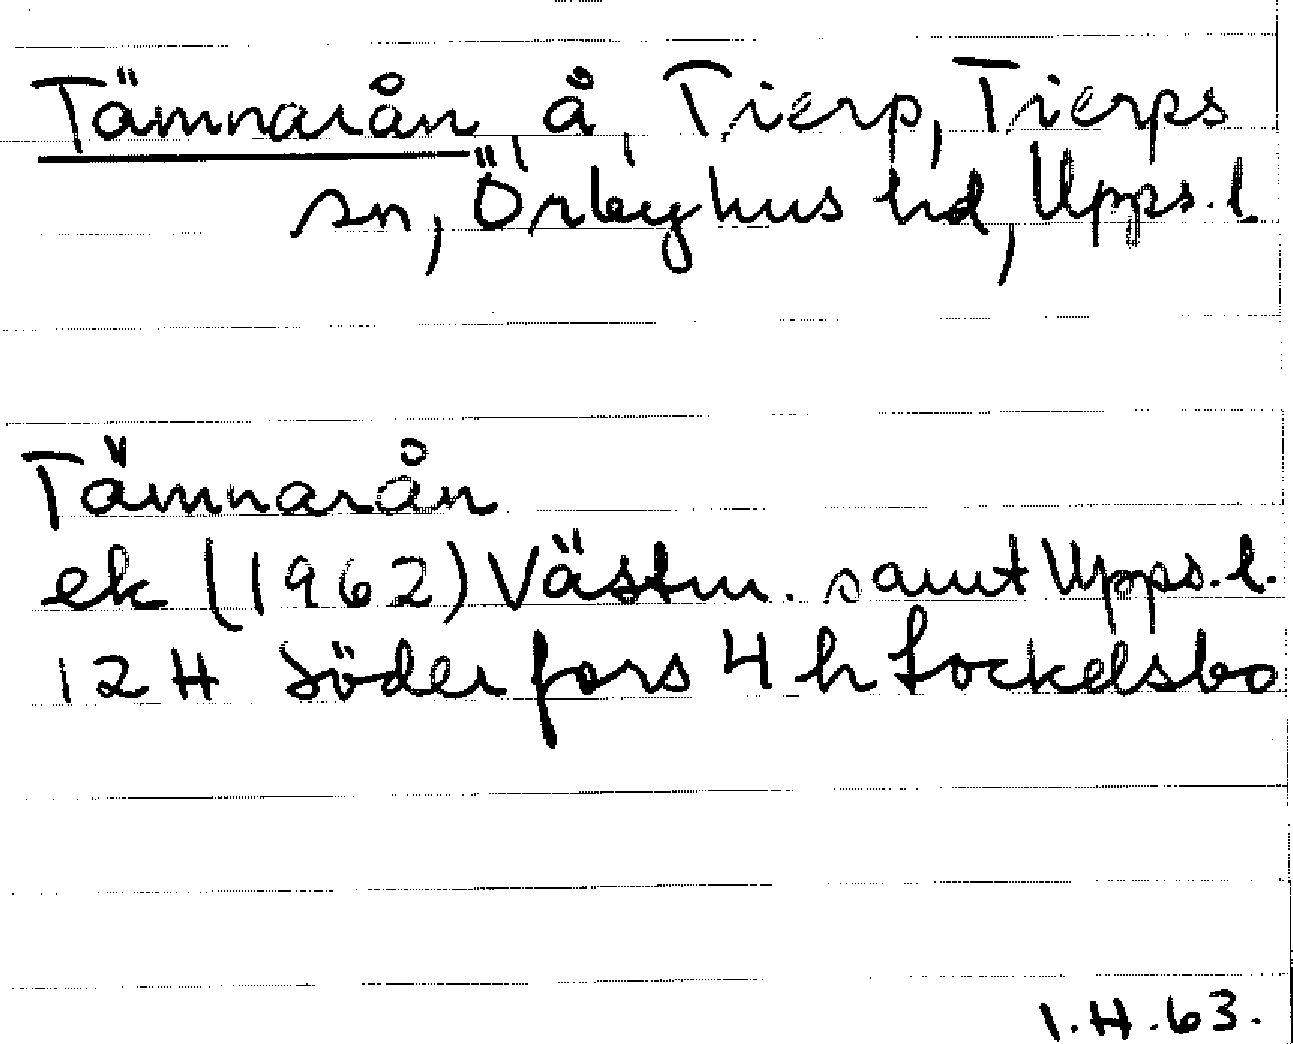 Tämnarån, å, Tierp, Tierps
sn, Örbyhus hd, Upps. l
Tämnarån
ek (1962) Västm. samt Upps. l.
12 H Söderfors 4 h Sockelsbo
I.H.63.